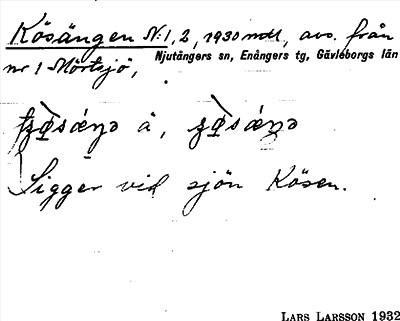 Kösängen N:1, 2, 1930 mdl, avs. från
Njutångers sn, Enångers tg, Gävleborgs län
nr 1 Mörtsjö,
å,
Ligger vid sjön Kösen.
LARS LARSSON 1932